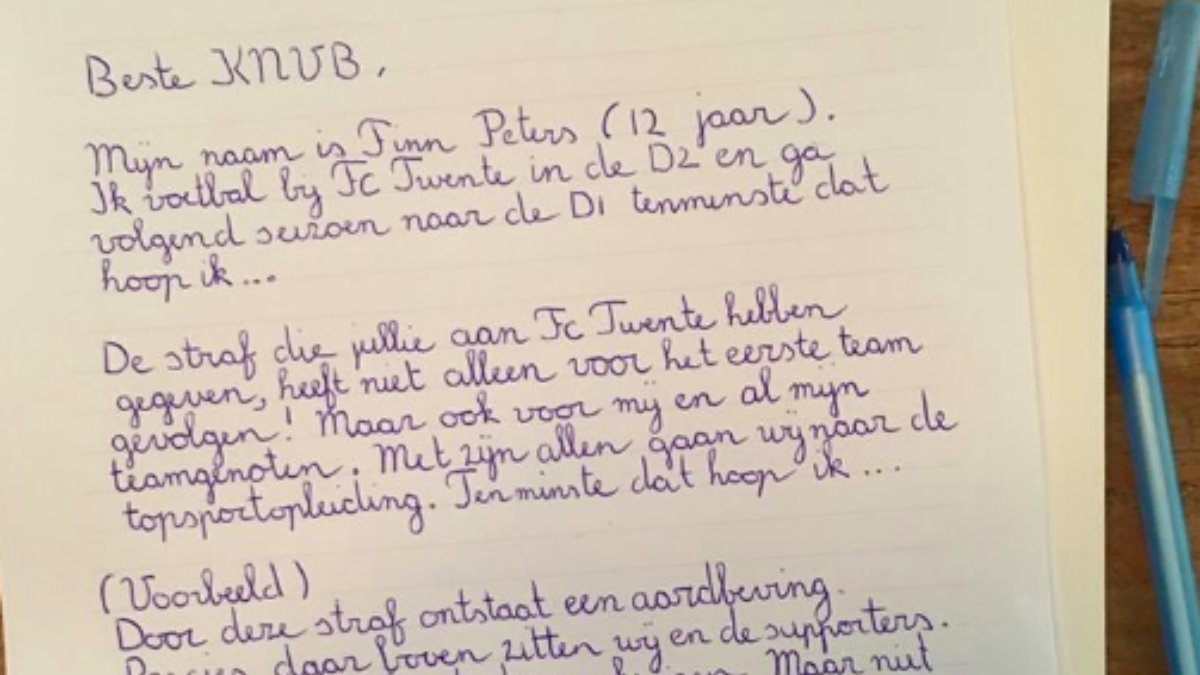 Beste KNVB,
Mijn naam is Finn Peters (12 jaar).
Ik voetbal bij Fc Twente in de D2 en ga
volgend seizoen naar de D1 tenminste dat
hoop ik...
De straf die jullie aan Fc Twente hebben
gegeven, heeft niet alleen voor het eerste team
gevolgen! Maar ook voor mij en al mijn
teamgenoten. Met zijn allen gaan wij naar de
topsportopleiding. Tenminste dat hoop ik...
(Voorbeeld)
Door deze straf ontstaat een aardbeving.
Precies daar boven zitten wij en de supporters.
Maar niet